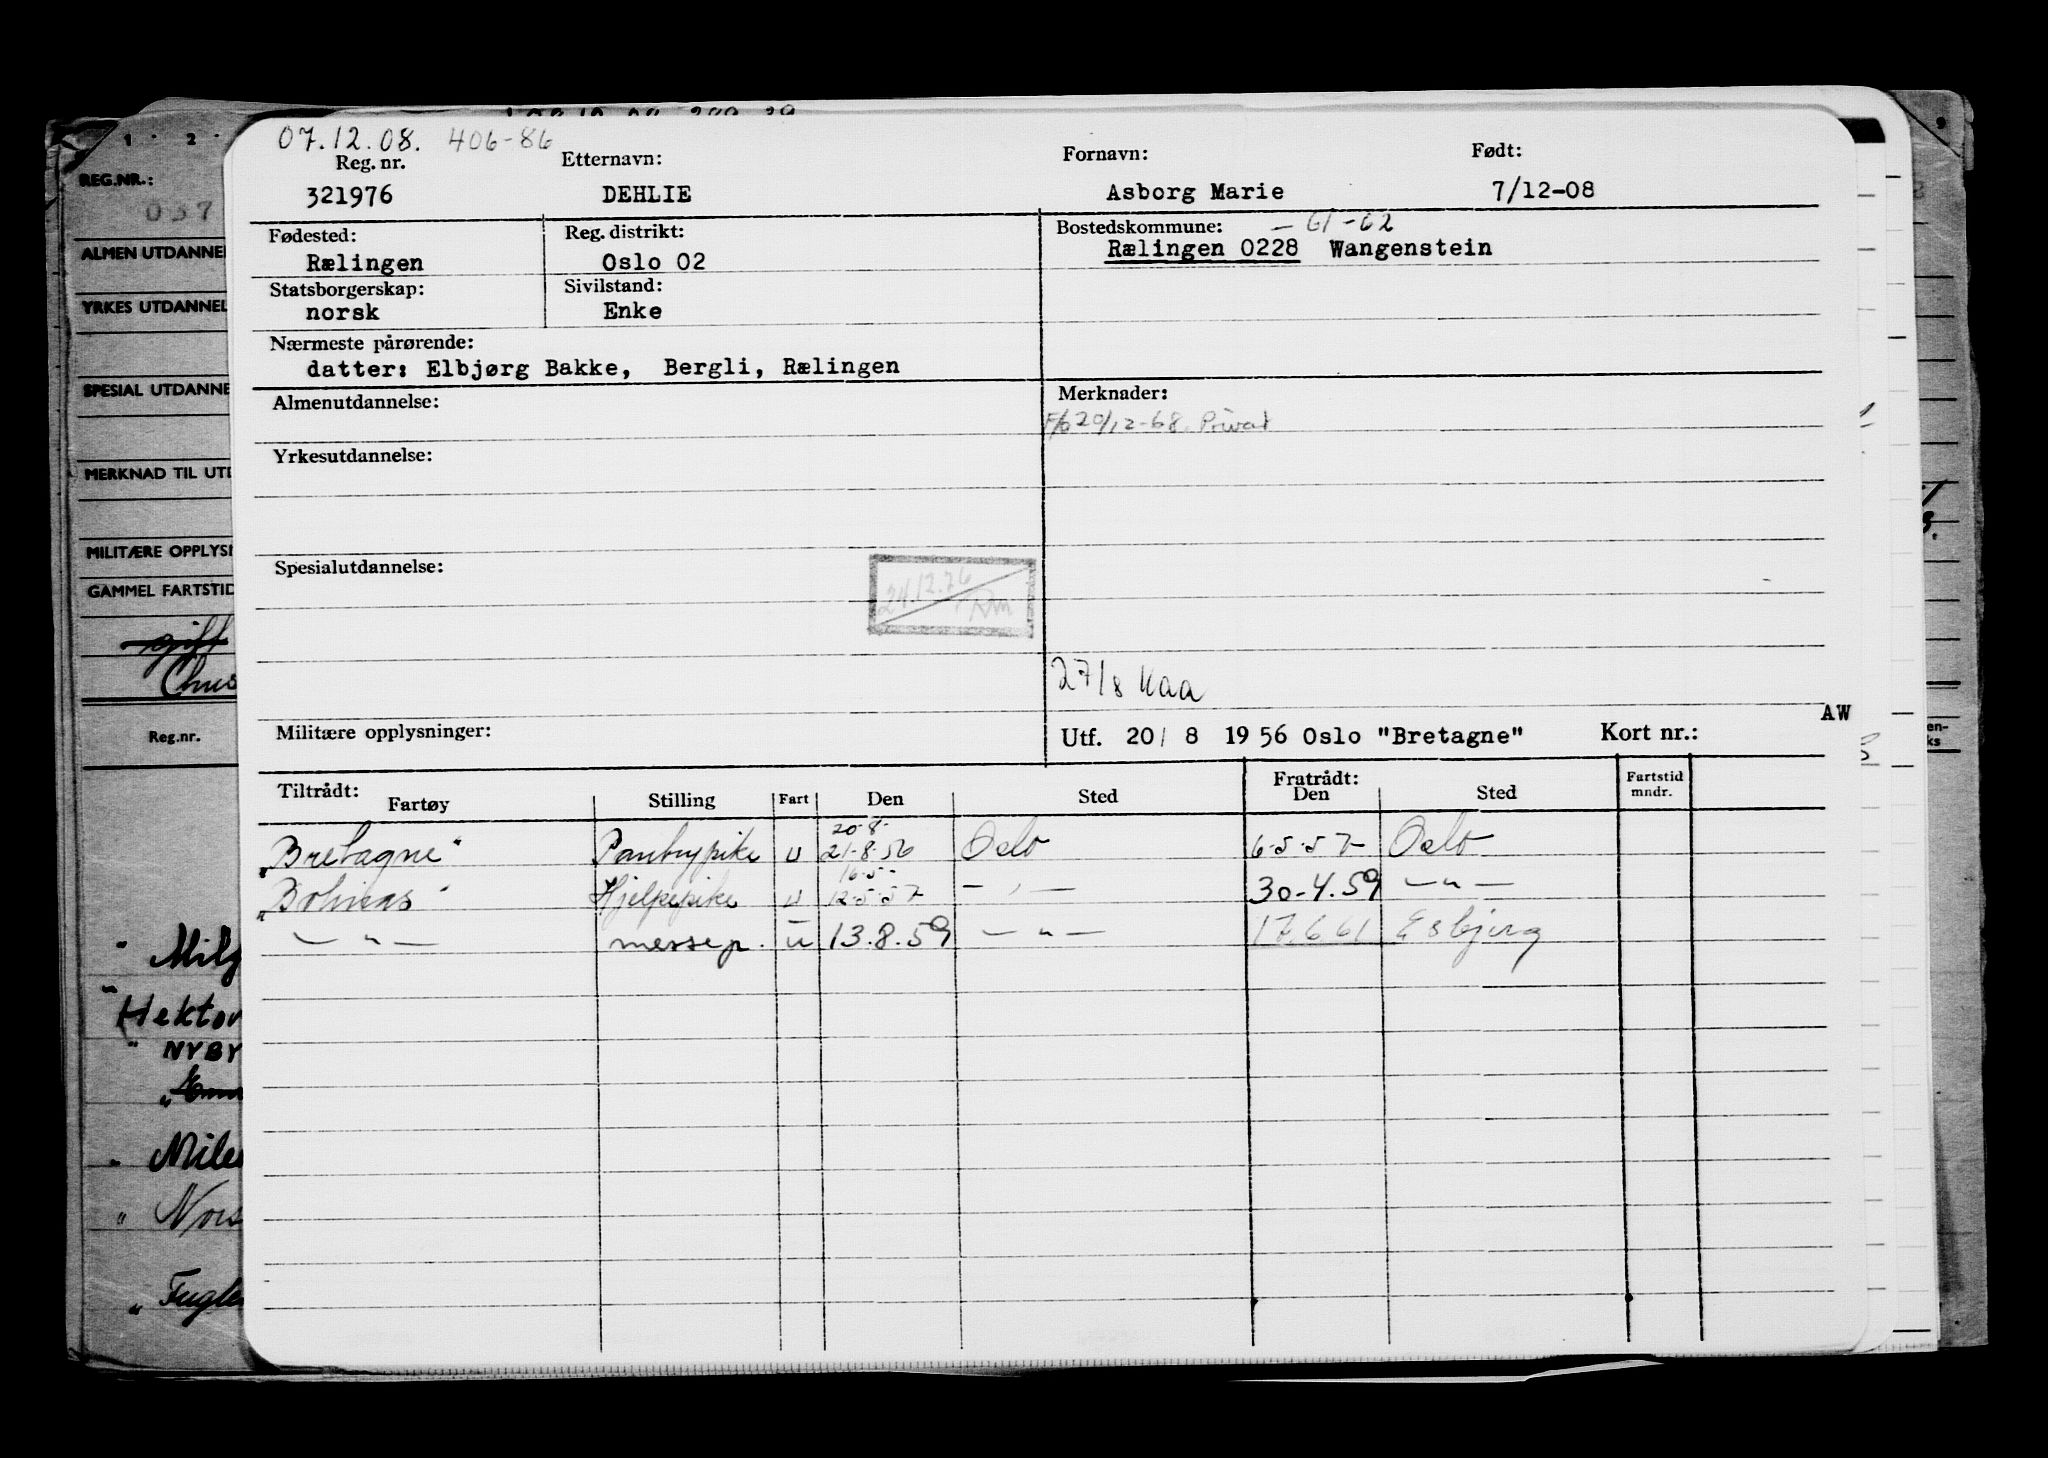 07.12.08. 406-86
Reg. nr. Etternavn: Fornavn: Født:
321976 DEHLIE Asborg Marie 7/12-08
Fødested: Reg. distrikt: Bostedskommune: — 61-62
Rælingen Oslo 02 Rælingen 0228 Wangenstein
Statsborgerskap: Sivilstand:
norsk Enke
Nærmeste pårørende:
datter: Elbjørg Bakke, Bergli, Rælingen
Almenutdannelse: Merknader:
F/b 20/12-68. Privat
Yrkesutdannelse:
Spesialutdannelse:
24.12.76
27/8 Kaa
AW
Militære opplysninger: Utf. 20/ 8 1956 Oslo "Bretagne" Kort nr.:
Tiltrådt: Fratrådt: Fartstid
Fartøy Stilling Fart Den Sted Den Sted mndr.
20.8.
"Bretagne" Pantrypike u 21.8.56 Oslo 6.5.57 Oslo
16.5.
"Bolinas" Hjelpepike u 12.5.57 — " — 30.4.59 — " —
— " — messep. u 13.8.59 — " — 17.6.61 Esbjerg
1 2
REG.NR.:
037
ALMEN UTDANNEL
YRKES UTDANNEL
SPESIAL UTDANNE
MERKNAD TIL UTD
MILITÆRE OPPLYSN
GAMMEL FARTSTID
gift
Chris
Reg.nr.
" Milj
"Hektor
" NYBY
" Mile
" Nors
" Fugle
9
en-
ks